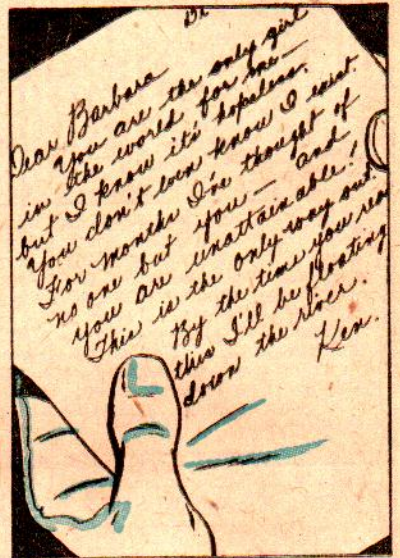 Dear Barbara
You are the only girl
in the world for me—
but I know it's hopeless.
You don't even know I exist.
For months I've thought of
no one but you — and
you are unattainable!
This is the only way out.
By the time you rea
this I'll be floating
down the river.
Ken.